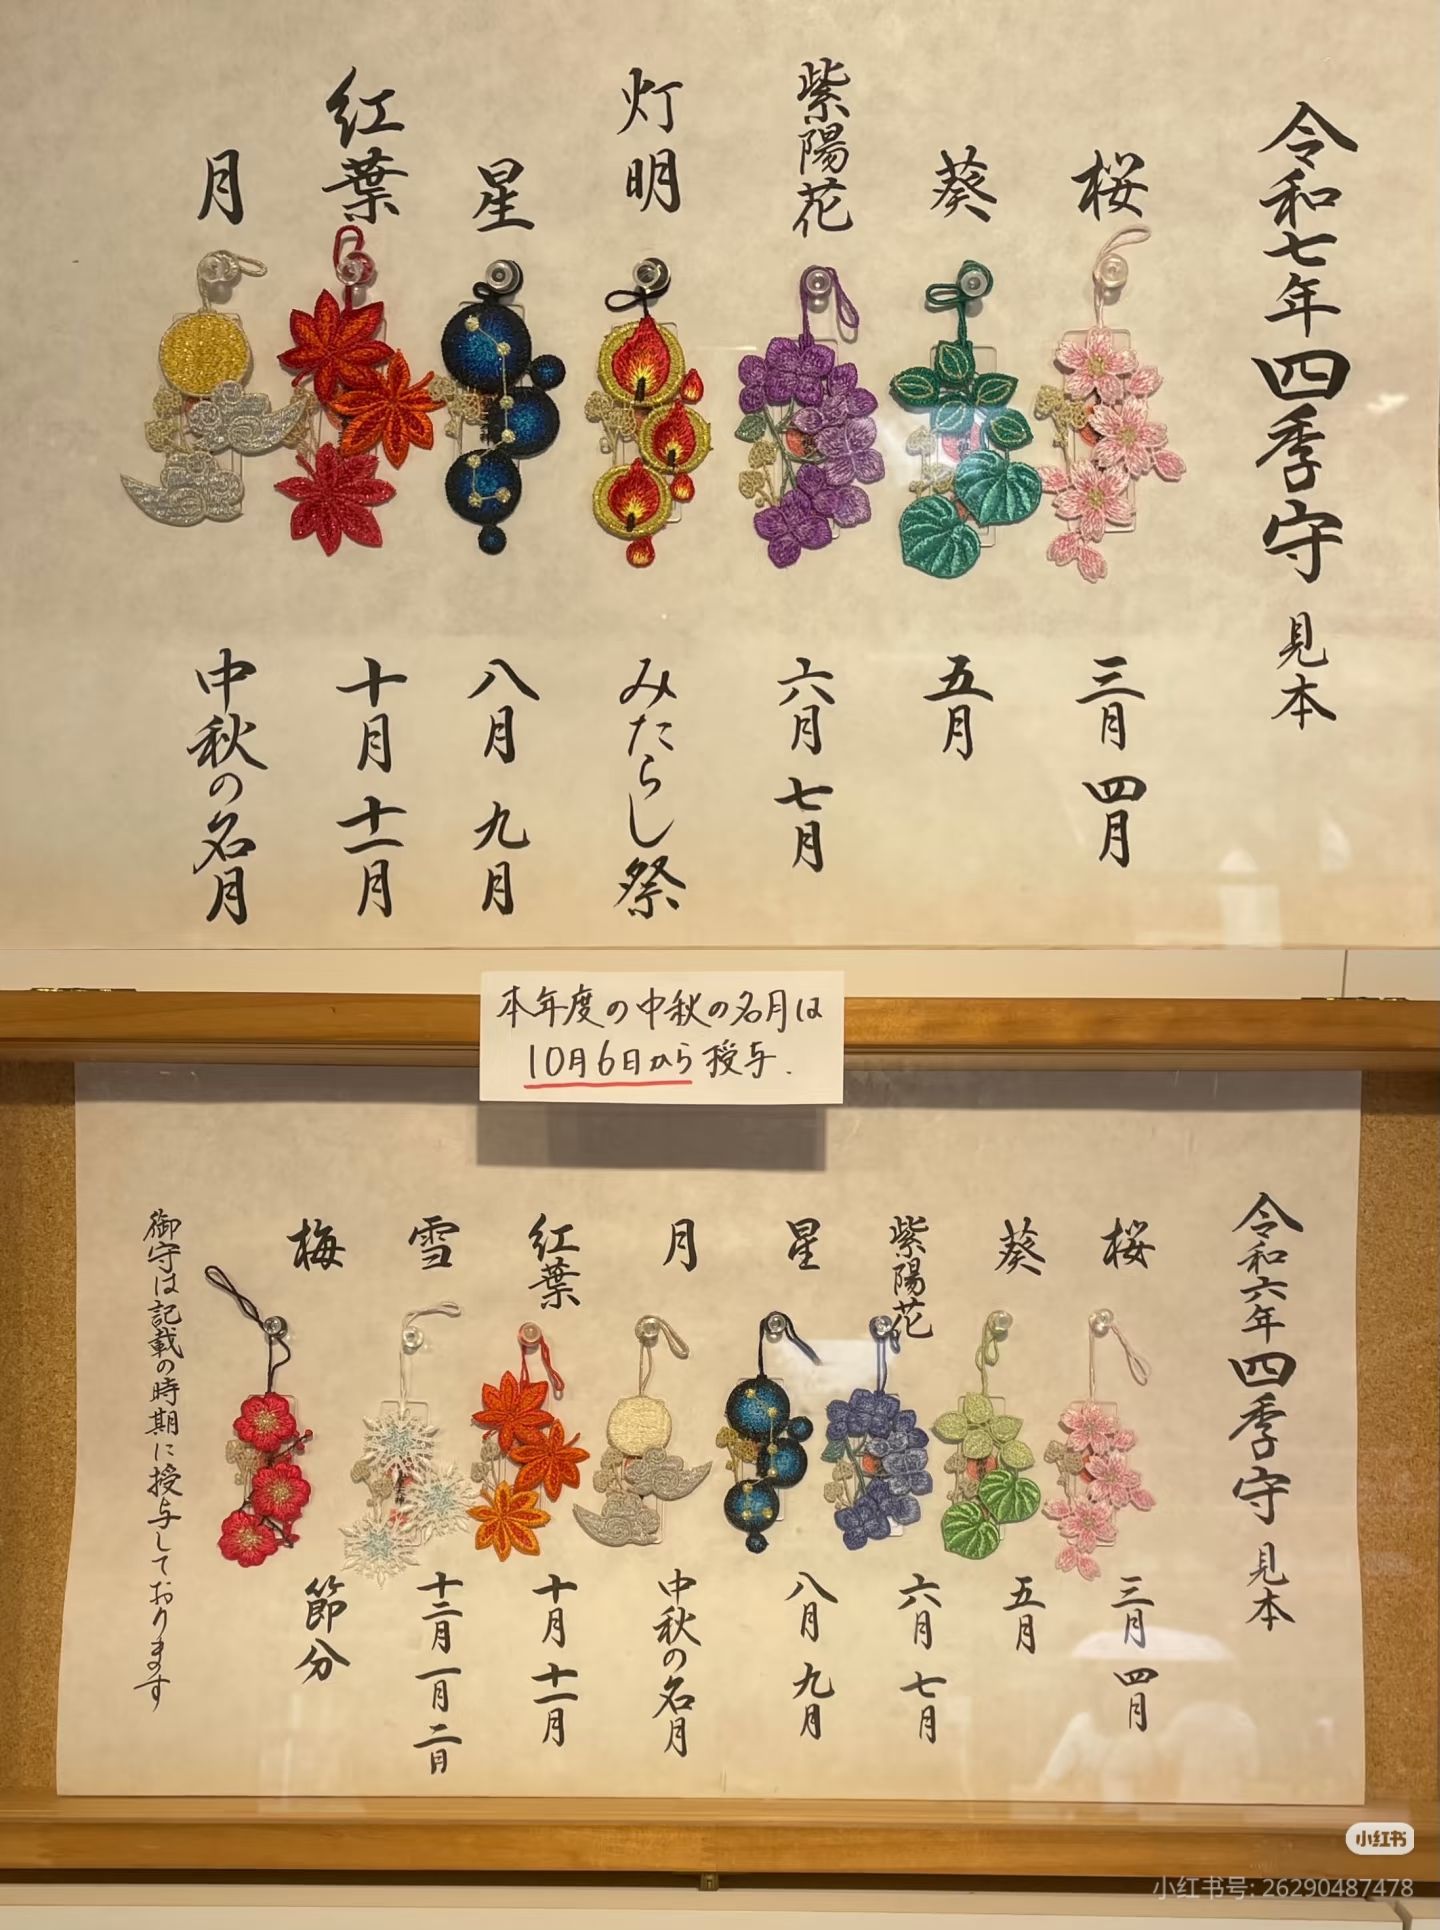 令和七年四季守 見本
桜
三月 四月
葵
五月
紫陽花
六月 七月
灯明
みたらし祭
星
八月 九月
紅葉
十月 十一月
月
中秋の名月
本年度の中秋の名月は
10月6日から授与.
令和六年四季守 見本
桜
三月 四月
葵
五月
紫陽花
六月 七月
星
八月 九月
月
中秋の名月
紅葉
十月 十一月
雪
十二月 一月 二月
梅
節分
御守は記載の時期に授与しております
小红书
小红书号: 26290487478